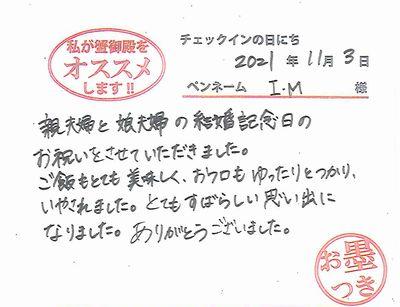 私が蟹御殿を
オススメ
します!!
チェックインの日にち
2021年11月3日
ペンネーム I・M 様
親夫婦と娘夫婦の結婚記念日の
お祝いをさせていただきました。
ご飯もとても美味しく、おフロもゆったりとつかり、
いやされました。とてもすばらしい思い出に
なりました。ありがとうございました。
お墨
つき